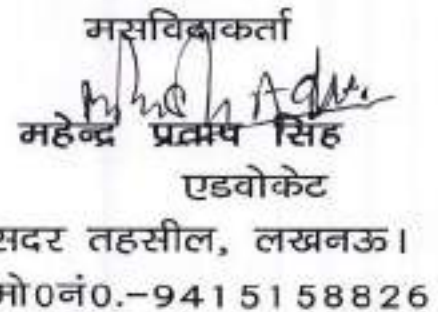 मसविदाकर्ता
महेन्द्र प्रताप सिंह
एडवोकेट
सदर तहसील, लखनऊ।
मो0नं0.-9415158826